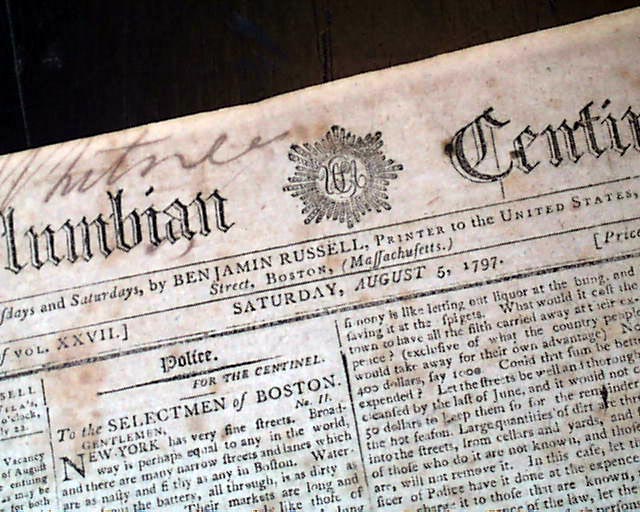 Whitne
lumbian Centin
sdays and Saturdays, by BENJAMIN RUSSELL, PRINTER to the UNITED STATES
Street, BOSTON, (Maſſachuſetts.)
[Price
of VOL. XXVII.]
SATURDAY, AUGUST 5, 1797.
SELL
Vacancy
of Auguſt
may be
for both
Police.
FOR THE CENTINEL.
To the SELECTMEN of BOSTON.
No. II.
GENTLEMEN,
NEW-YORK has very fine ſtreets. Broad-
way is perhaps equal to any in the world,
and there are many narrow ſtreets and lanes which
are as naſty and filthy as any in Boſton. Water-
the battery, all through, is as dirty
Their markets are long and
like thoſe of
ſimony is like letting out liquor at the bung, and
ſaving it at the ſpigets. What would it coſt the
town to have all the filth carried away at their ex-
pence? (excluſive of what the country people
would take away for their own advantage) No
400 dollars, ſay 1000. Could that ſum be better
expended? Let the ſtreets be well and thorough
cleanſed by the laſt of June, and it would not
50 dollars to keep them ſo for the remainder
the hot ſeaſon. Large quantities of dirt
into the ſtreets, from cellars and yards, and
of thoſe who do it are not known, and thoſe
are, will not remove it. In this caſe, let
ficer of Police have it done at the expence
charge it to thoſe that are known,
of the law, let the